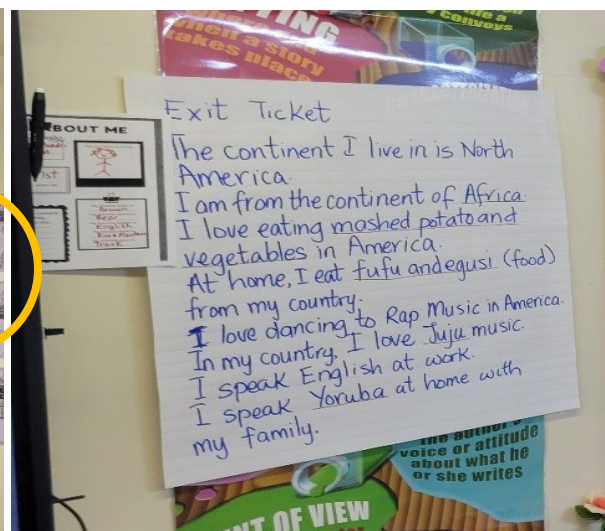 TING
where and
when a story
takes place
life a
y conveys
Exit Ticket
The continent I live in is North
America.
I am from the continent of Africa.
I love eating mashed potato and
vegetables in America.
At home, I eat fufu and egusi (food)
from my country.
I love dancing to Rap Music in America.
In my country, I love Juju music.
I speak English at work.
I speak Yoruba at home with
my family.
BOUT ME
1st
Brown
Bear
English
Track
the author's
voice or attitude
about what he
or she writes
NT OF VIEW